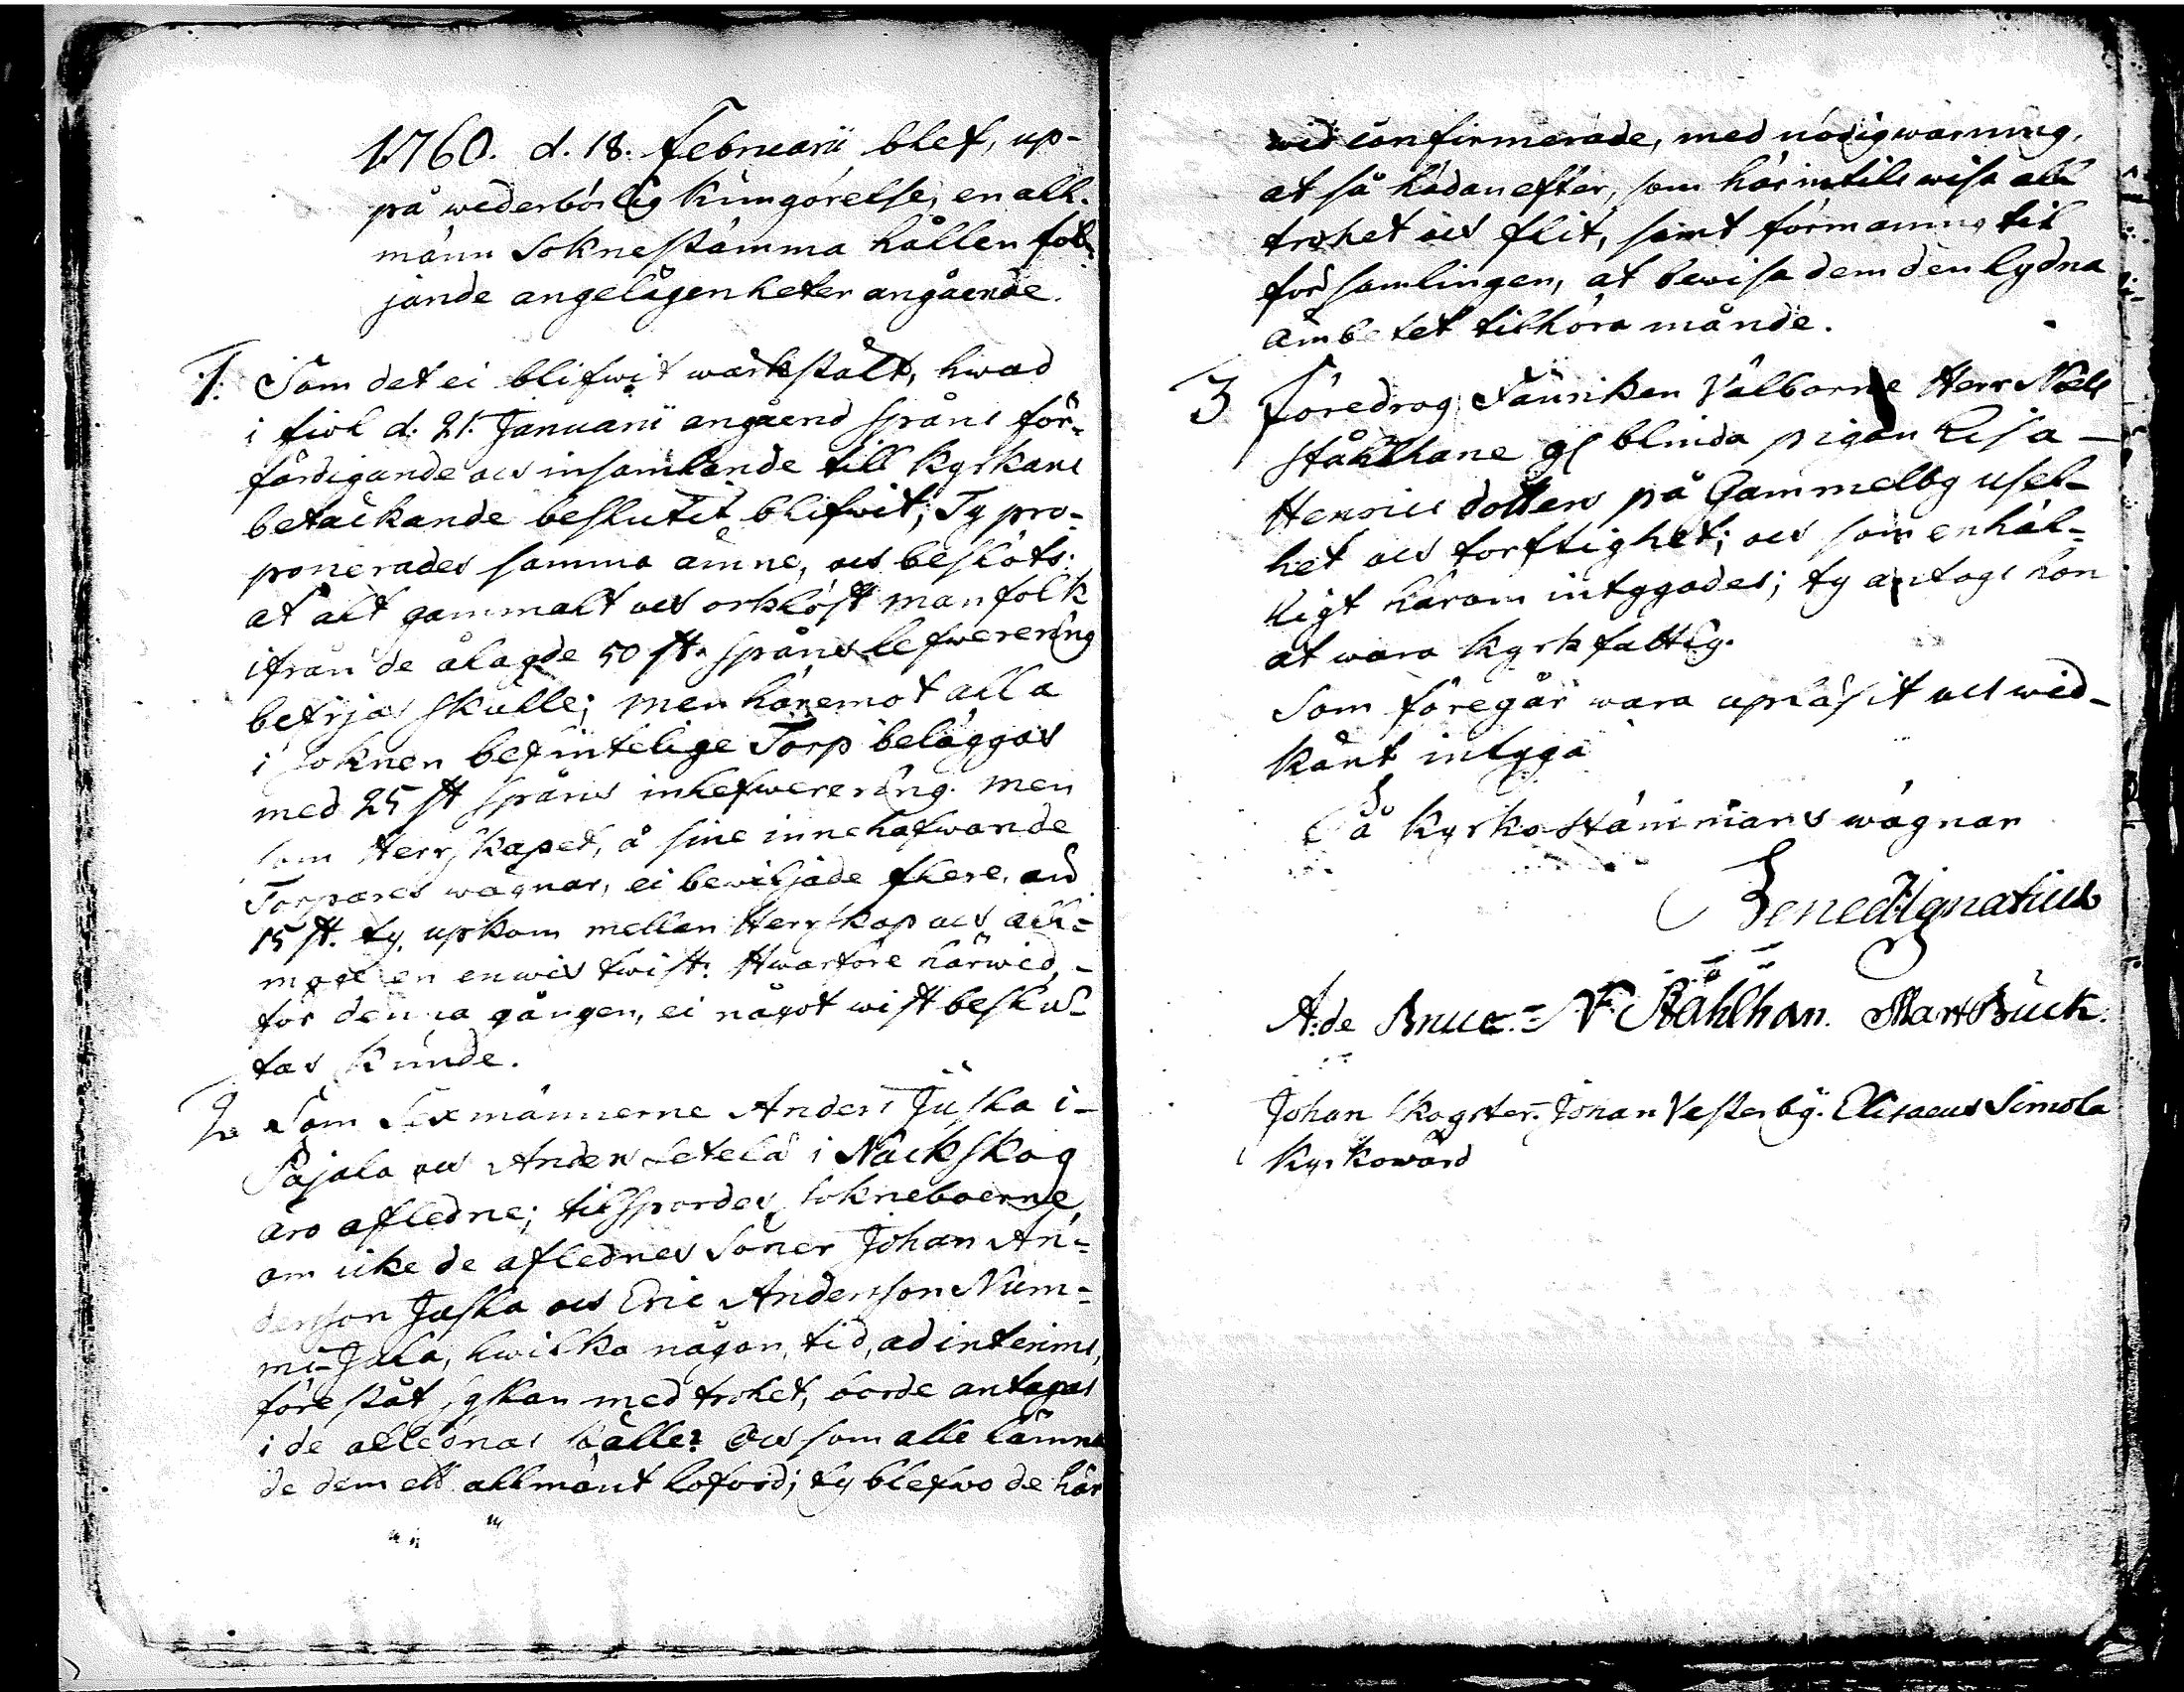 1760. d. 18. Februarii blef, up-
på wederbörlig Kungörelse, en all-
männ Soknestämma hållen föl-
jande angelägenheter angående.
1. Som det ei blifwit wärkstält, hwad
i fiol d. 21. Januarii angående spåns för-
färdigande och insamlande till Kyrkans
betäckande beslutit blifwit; Ty pro-
ponerades samma ämne, och beslöts:
at alt gammalt och orklöst manfolk
ifrån de ålagde 50 st. spåns lefwerering
befrjas skulle; men häremot alla
i soknen befintelige Torp beläggas
med 25 st spåns inlefwerering. men
som Herrskapet, å sine innehafwande
Torpares wägnar, ei beviljade flere, än
15 st. ty upkom mellan Herrskap och all-
mogen en twist. Hwarföre härwid,
för denna gången, ei något wist beslu-
tas kunde.
2. Som Sexmännerne Anders Juska i
Pajala och Anders i Näckskog
äro afledne; tilspordes, sokneboerne,
om icke de aflednes Söner Johan An-
dersson Juska och Eric Andersson Num-
mi-Jala, hwilka någon tid, ad interims,
föreståt syslan med trohet, borde antagas
i de aflednas ställe? Och som alle lämna
de dem ett allmänt loford; ty blefwo de här
wid confirmerade, med nödig warning,
at så hädanefter, som härintils wisa all
trohet och flit, samt förmaning til
församlingen, at bewisa dem den lydna
ämbetet tilhöra månde.
3 Föredrog Fänriken Välborne Herr Nils
Stålhane gl blinda pigan Lisa
Henrics dotters på Gammelby usel-
het och torftighet; och som enhäl-
ligt härom intygades; ty antogs hon
at wara kyrkfattig.
Som föregår wara upläsit och wid-
känt intyga
På Kyrkostämmans wägnar
Bened. Ignatius
A: de Bruce. N F: Stahlhan. Mart Buck.
Johan Skogster. Johan Vesterby. Elisaeus Simola
Kyrkowärd